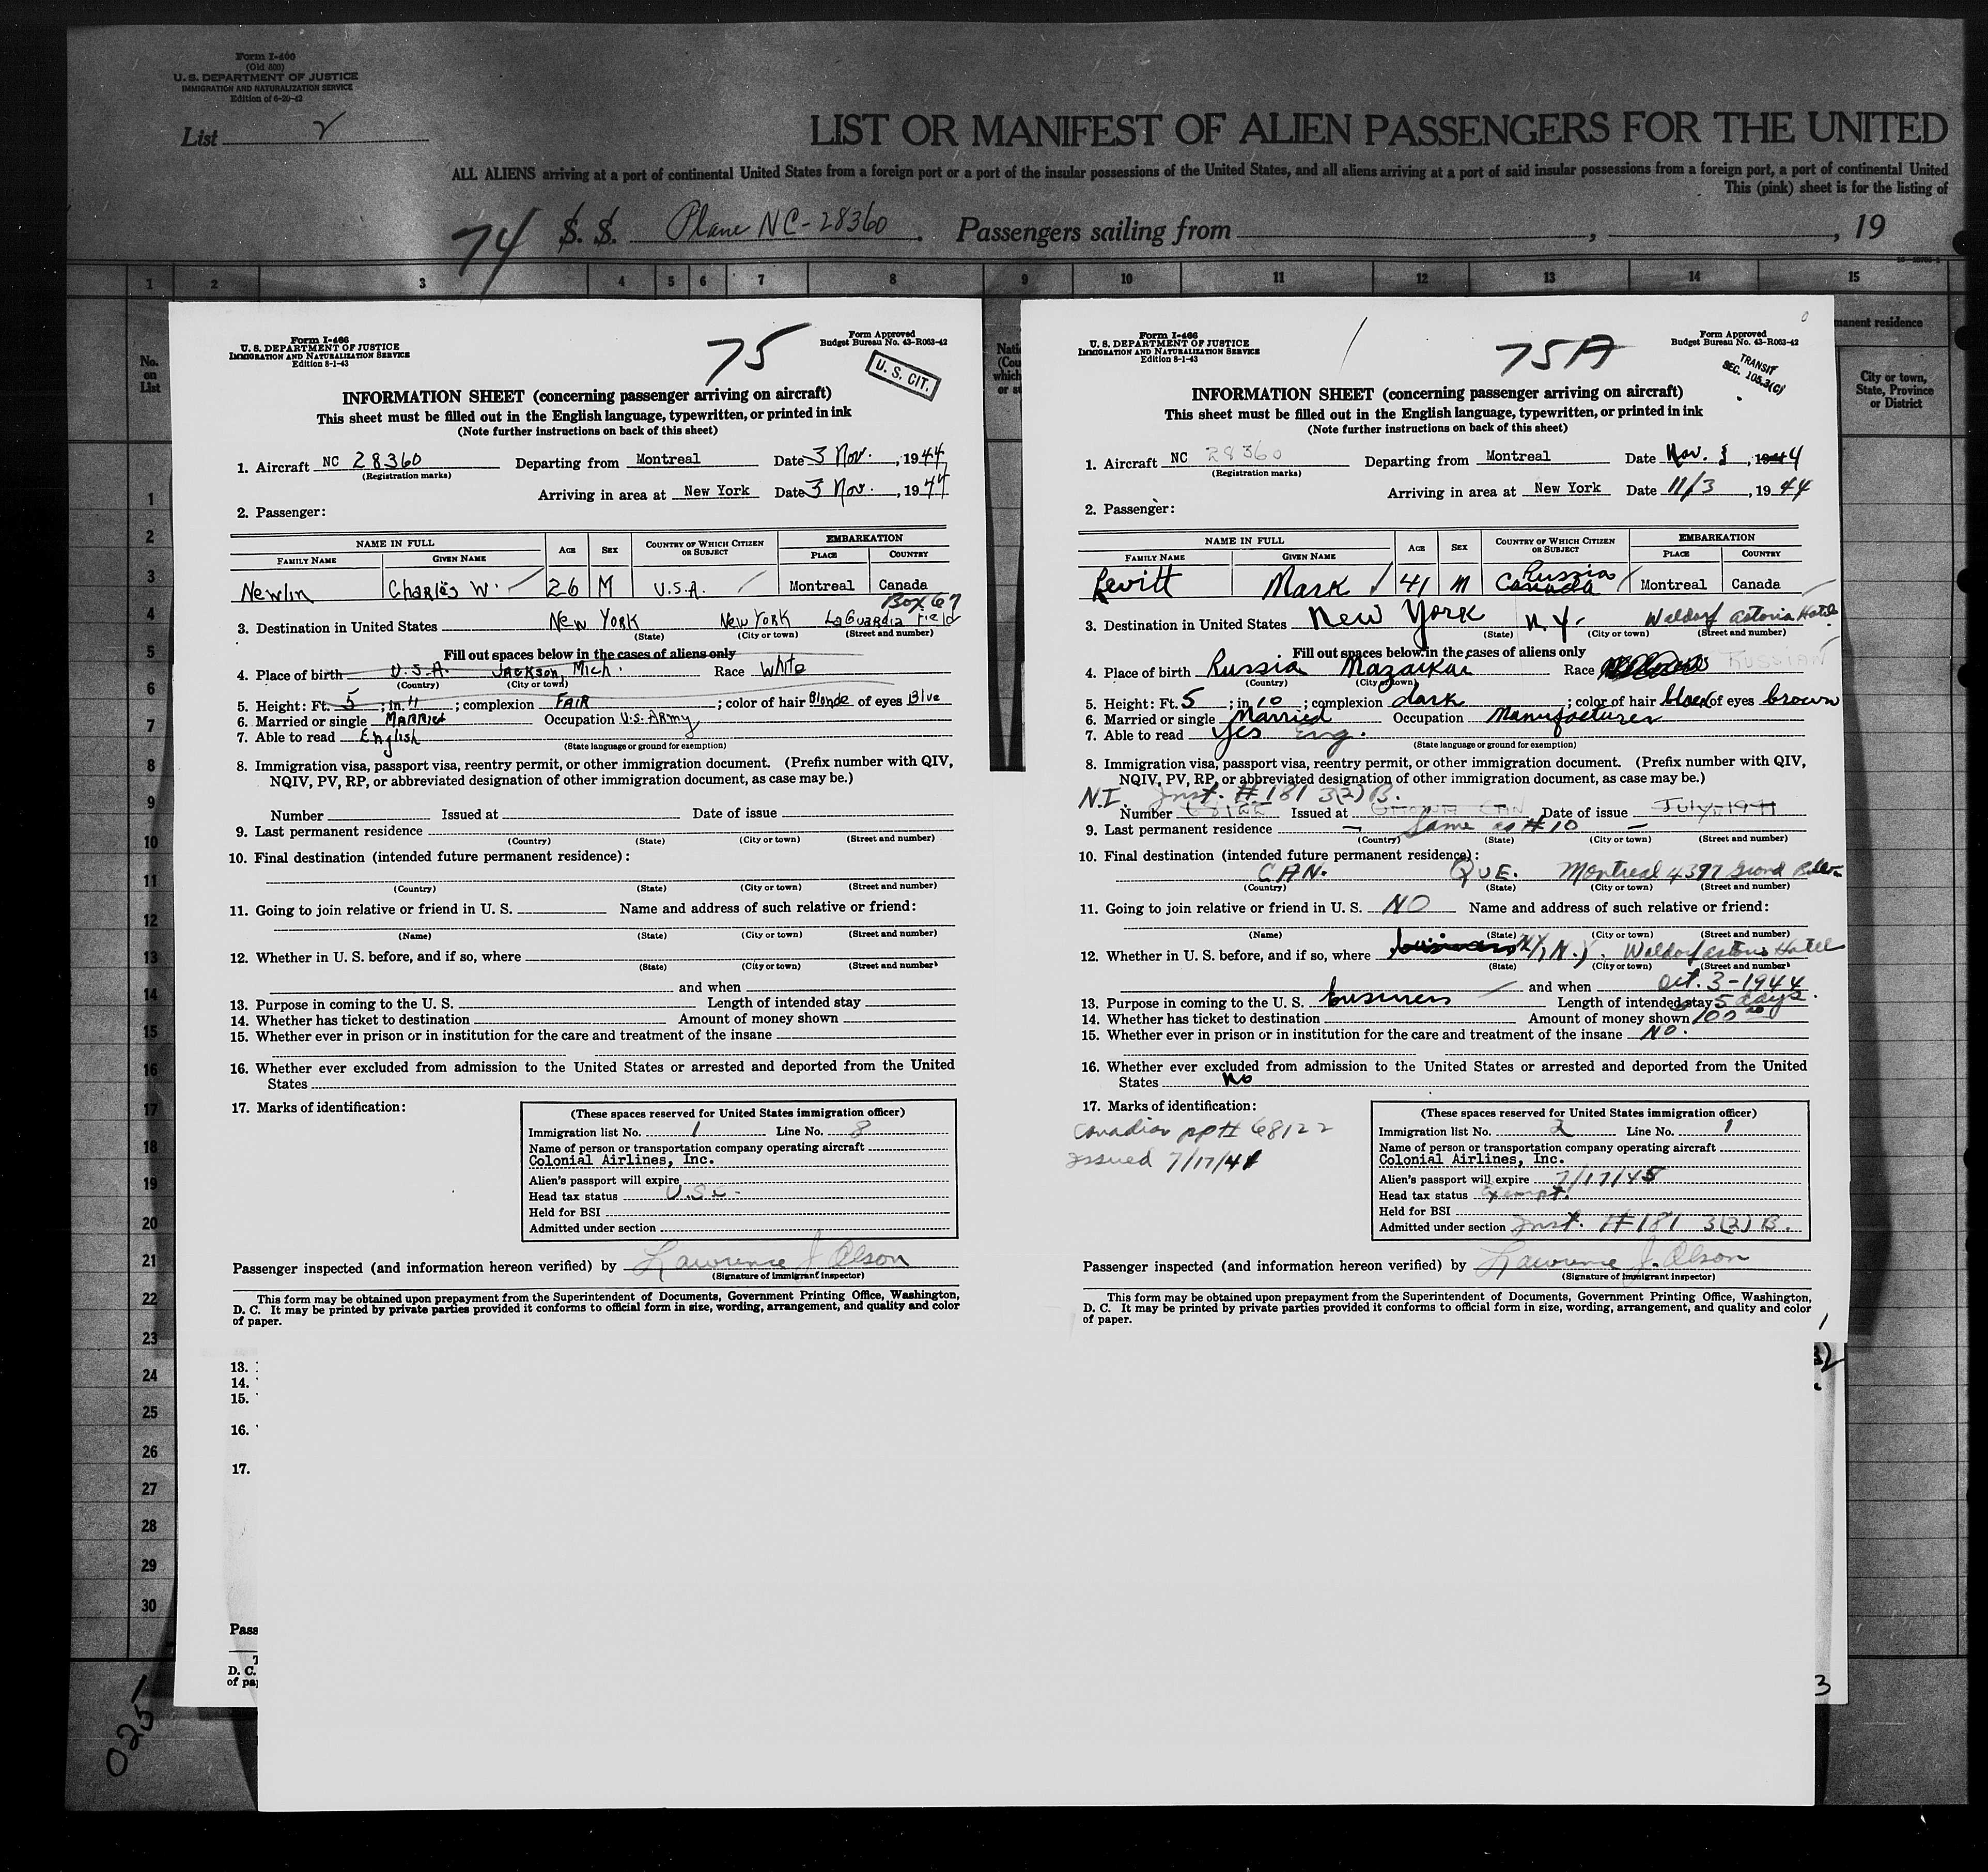 Form I-400
(Old 500)
U. S. DEPARTMENT OF JUSTICE
IMMIGRATION AND NATURALIZATION SERVICE
Edition of 6-20-42
List 2
LIST OR MANIFEST OF ALIEN PASSENGERS FOR THE UNITED
ALL ALIENS arriving at a port of continental United States from a foreign port or a port of the insular possessions of the United States, and all aliens arriving at a port of said insular possessions from a foreign port, a port of continental United
This (pink) sheet is for the listing of
74 S. S. Plane NC-28360. Passengers sailing from , , 19
1 2 3 4 5 6 7 8 9 10 11 12 13 14 15
No. on List
manent residence
City or town, State, Province or District
1
2
3
4
5
6
7
8
9
10
11
12
13
14
15
16
17
18
19
20
21
22
23
24
25
26
27
28
29
30
025
Form I-466
U. S. DEPARTMENT OF JUSTICE
IMMIGRATION AND NATURALIZATION SERVICE
Edition 8-1-43
75
Form Approved
Budget Bureau No. 43-R063-42
U. S. CIT.
INFORMATION SHEET (concerning passenger arriving on aircraft)
This sheet must be filled out in the English language, typewritten, or printed in ink
(Note further instructions on back of this sheet)
1. Aircraft NC 28360 Departing from Montreal Date 3 Nov. , 1944
(Registration marks)
Arriving in area at New York Date 3 Nov. , 1944
2. Passenger:
NAME IN FULL AGE SEX COUNTRY OF WHICH CITIZEN OR SUBJECT EMBARKATION
FAMILY NAME GIVEN NAME PLACE COUNTRY
Newlin Charles W. 26 M U.S.A. Montreal Canada
Box 67
3. Destination in United States New York New York LaGuardia Field
(State) (City or town) (Street and number)
Fill out spaces below in the cases of aliens only
4. Place of birth U.S.A. Jackson, Mich. Race White
(Country) (City or town)
5. Height: Ft. 5 ; in. 11 ; complexion FAIR ; color of hair Blonde of eyes Blue
6. Married or single MARRIED Occupation U.S. Army
7. Able to read English
(State language or ground for exemption)
8. Immigration visa, passport visa, reentry permit, or other immigration document. (Prefix number with QIV,
NQIV, PV, RP, or abbreviated designation of other immigration document, as case may be.)
Number Issued at Date of issue
9. Last permanent residence
(Country) (State) (City or town) (Street and number)
10. Final destination (intended future permanent residence):
(Country) (State) (City or town) (Street and number)
11. Going to join relative or friend in U. S. Name and address of such relative or friend:
(Name) (State) (City or town) (Street and number)
12. Whether in U. S. before, and if so, where
(State) (City or town) (Street and number)
and when
13. Purpose in coming to the U. S. Length of intended stay
14. Whether has ticket to destination Amount of money shown
15. Whether ever in prison or in institution for the care and treatment of the insane
16. Whether ever excluded from admission to the United States or arrested and deported from the United
States
17. Marks of identification:
(These spaces reserved for United States immigration officer)
Immigration list No. 1 Line No. 8
Name of person or transportation company operating aircraft
Colonial Airlines, Inc.
Alien's passport will expire
Head tax status U.S.C.
Held for BSI
Admitted under section
Passenger inspected (and information hereon verified) by Lawrence J. Olson
(Signature of immigrant inspector)
This form may be obtained upon prepayment from the Superintendent of Documents, Government Printing Office, Washington,
D. C. It may be printed by private parties provided it conforms to official form in size, wording, arrangement, and quality and color
of paper.
13.
14.
15.
16.
17.
Pass
D. C.
of pa
Form I-466
U. S. DEPARTMENT OF JUSTICE
IMMIGRATION AND NATURALIZATION SERVICE
Edition 8-1-43
75A
Form Approved
Budget Bureau No. 43-R063-42
TRANSIT
SEC. 105.3(C)
INFORMATION SHEET (concerning passenger arriving on aircraft)
This sheet must be filled out in the English language, typewritten, or printed in ink
(Note further instructions on back of this sheet)
1. Aircraft NC 28360 Departing from Montreal Date Nov. 3 , 1944
(Registration marks)
Arriving in area at New York Date 11/3 , 1944
2. Passenger:
NAME IN FULL AGE SEX COUNTRY OF WHICH CITIZEN OR SUBJECT EMBARKATION
FAMILY NAME GIVEN NAME PLACE COUNTRY
Levitt Mark 41 M Russia Canada Montreal Canada
3. Destination in United States New York N.Y. Waldorf Astoria Hotel
(State) (City or town) (Street and number)
Fill out spaces below in the cases of aliens only
4. Place of birth Russia Race RUSSIAN
(Country) (City or town)
5. Height: Ft. 5 ; in 10 ; complexion dark ; color of hair black of eyes brown
6. Married or single Married Occupation Manufacturer
7. Able to read Yes Eng.
(State language or ground for exemption)
8. Immigration visa, passport visa, reentry permit, or other immigration document. (Prefix number with QIV,
NQIV, PV, RP, or abbreviated designation of other immigration document, as case may be.)
N.I. Inst. #181 3(2) B.
Number 68122 Issued at OTTAWA CAN Date of issue July-1941
9. Last permanent residence — Same as #10 —
(Country) (State) (City or town) (Street and number)
10. Final destination (intended future permanent residence):
CAN. QUE. Montreal 4397 Grand
(Country) (State) (City or town) (Street and number)
11. Going to join relative or friend in U. S. NO Name and address of such relative or friend:
(Name) (State) (City or town) (Street and number)
12. Whether in U. S. before, and if so, where business N.Y, N.Y. Waldorf Astoria Hotel
(State) (City or town) (Street and number)
and when Oct. 3-1944
13. Purpose in coming to the U. S. business Length of intended stay 5 days.
14. Whether has ticket to destination Amount of money shown 100.00
15. Whether ever in prison or in institution for the care and treatment of the insane No.
16. Whether ever excluded from admission to the United States or arrested and deported from the United
States No
17. Marks of identification:
Canadian ppt# 68122
Issued 7/17/41
(These spaces reserved for United States immigration officer)
Immigration list No. 2 Line No. 1
Name of person or transportation company operating aircraft
Colonial Airlines, Inc.
Alien's passport will expire 7/17/45
Head tax status Exempt.
Held for BSI
Admitted under section Inst. #181 3(2) B.
Passenger inspected (and information hereon verified) by Lawrence J. Olson
(Signature of immigrant inspector)
This form may be obtained upon prepayment from the Superintendent of Documents, Government Printing Office, Washington,
D. C. It may be printed by private parties provided it conforms to official form in size, wording, arrangement, and quality and color
of paper.